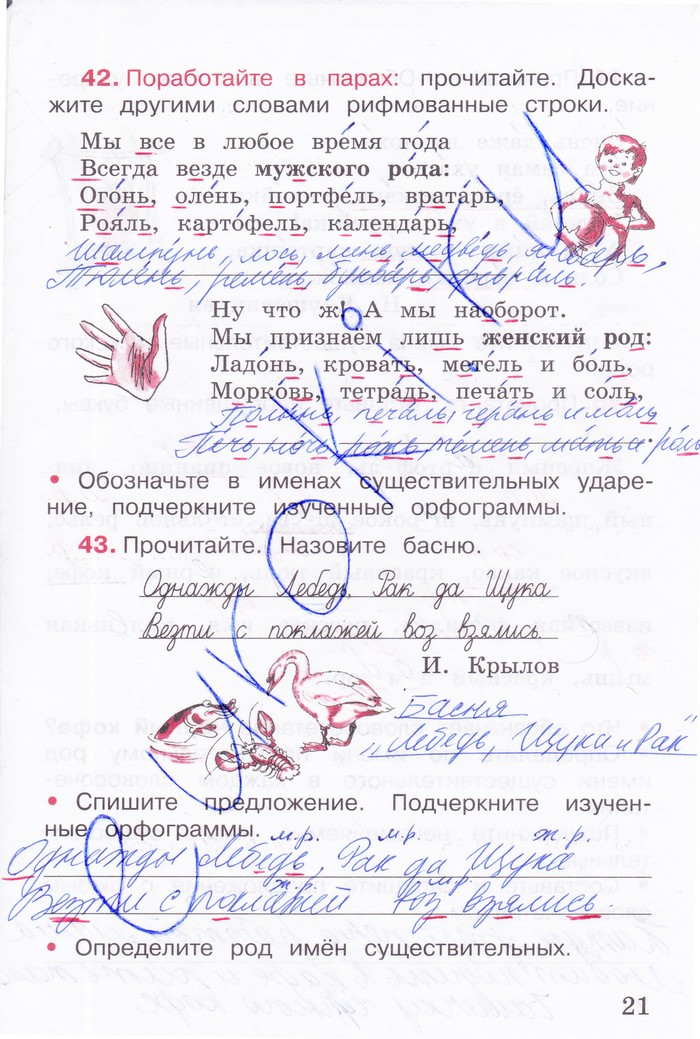 42. Поработайте в парах: прочитайте. Доска-
жите другими словами рифмованные строки.
Мы все в любое вре́мя го́да
Всегда везде мужского ро́да:
Ого́нь, оле́нь, портфе́ль, врата́рь,
Роя́ль, карто́фель, календа́рь,
Шампу́нь, лось, линь, медведь, янва́рь,
Тюле́нь, реме́нь, буква́рь, февра́ль.
Ну что ж! А мы наоборот.
Мы признаём лишь женский род:
Ладо́нь, крова́ть, мете́ль и бо́ль,
Морко́вь, тетра́дь, печа́ть и со́ль,
Полынь, печаль, герань и моль
Печь, ночь, рожь, темень, мать и роль
• Обозначьте в именах существительных ударе-
ние, подчеркните изученные орфограммы.
43. Прочитайте. Назовите басню.
Однажды Лебедь, Рак да Щука
Везти с поклажей воз взялись.
И. Крылов
Басня
„Лебедь, Щука и Рак"
• Спишите предложение. Подчеркните изучен-
ные орфограммы. м.р. м.р. ж.р.
Однажды Лебедь, Рак да Щука
ж.р. м.р.
Везти с поклажей воз взялись.
• Определите род имён существительных.
21